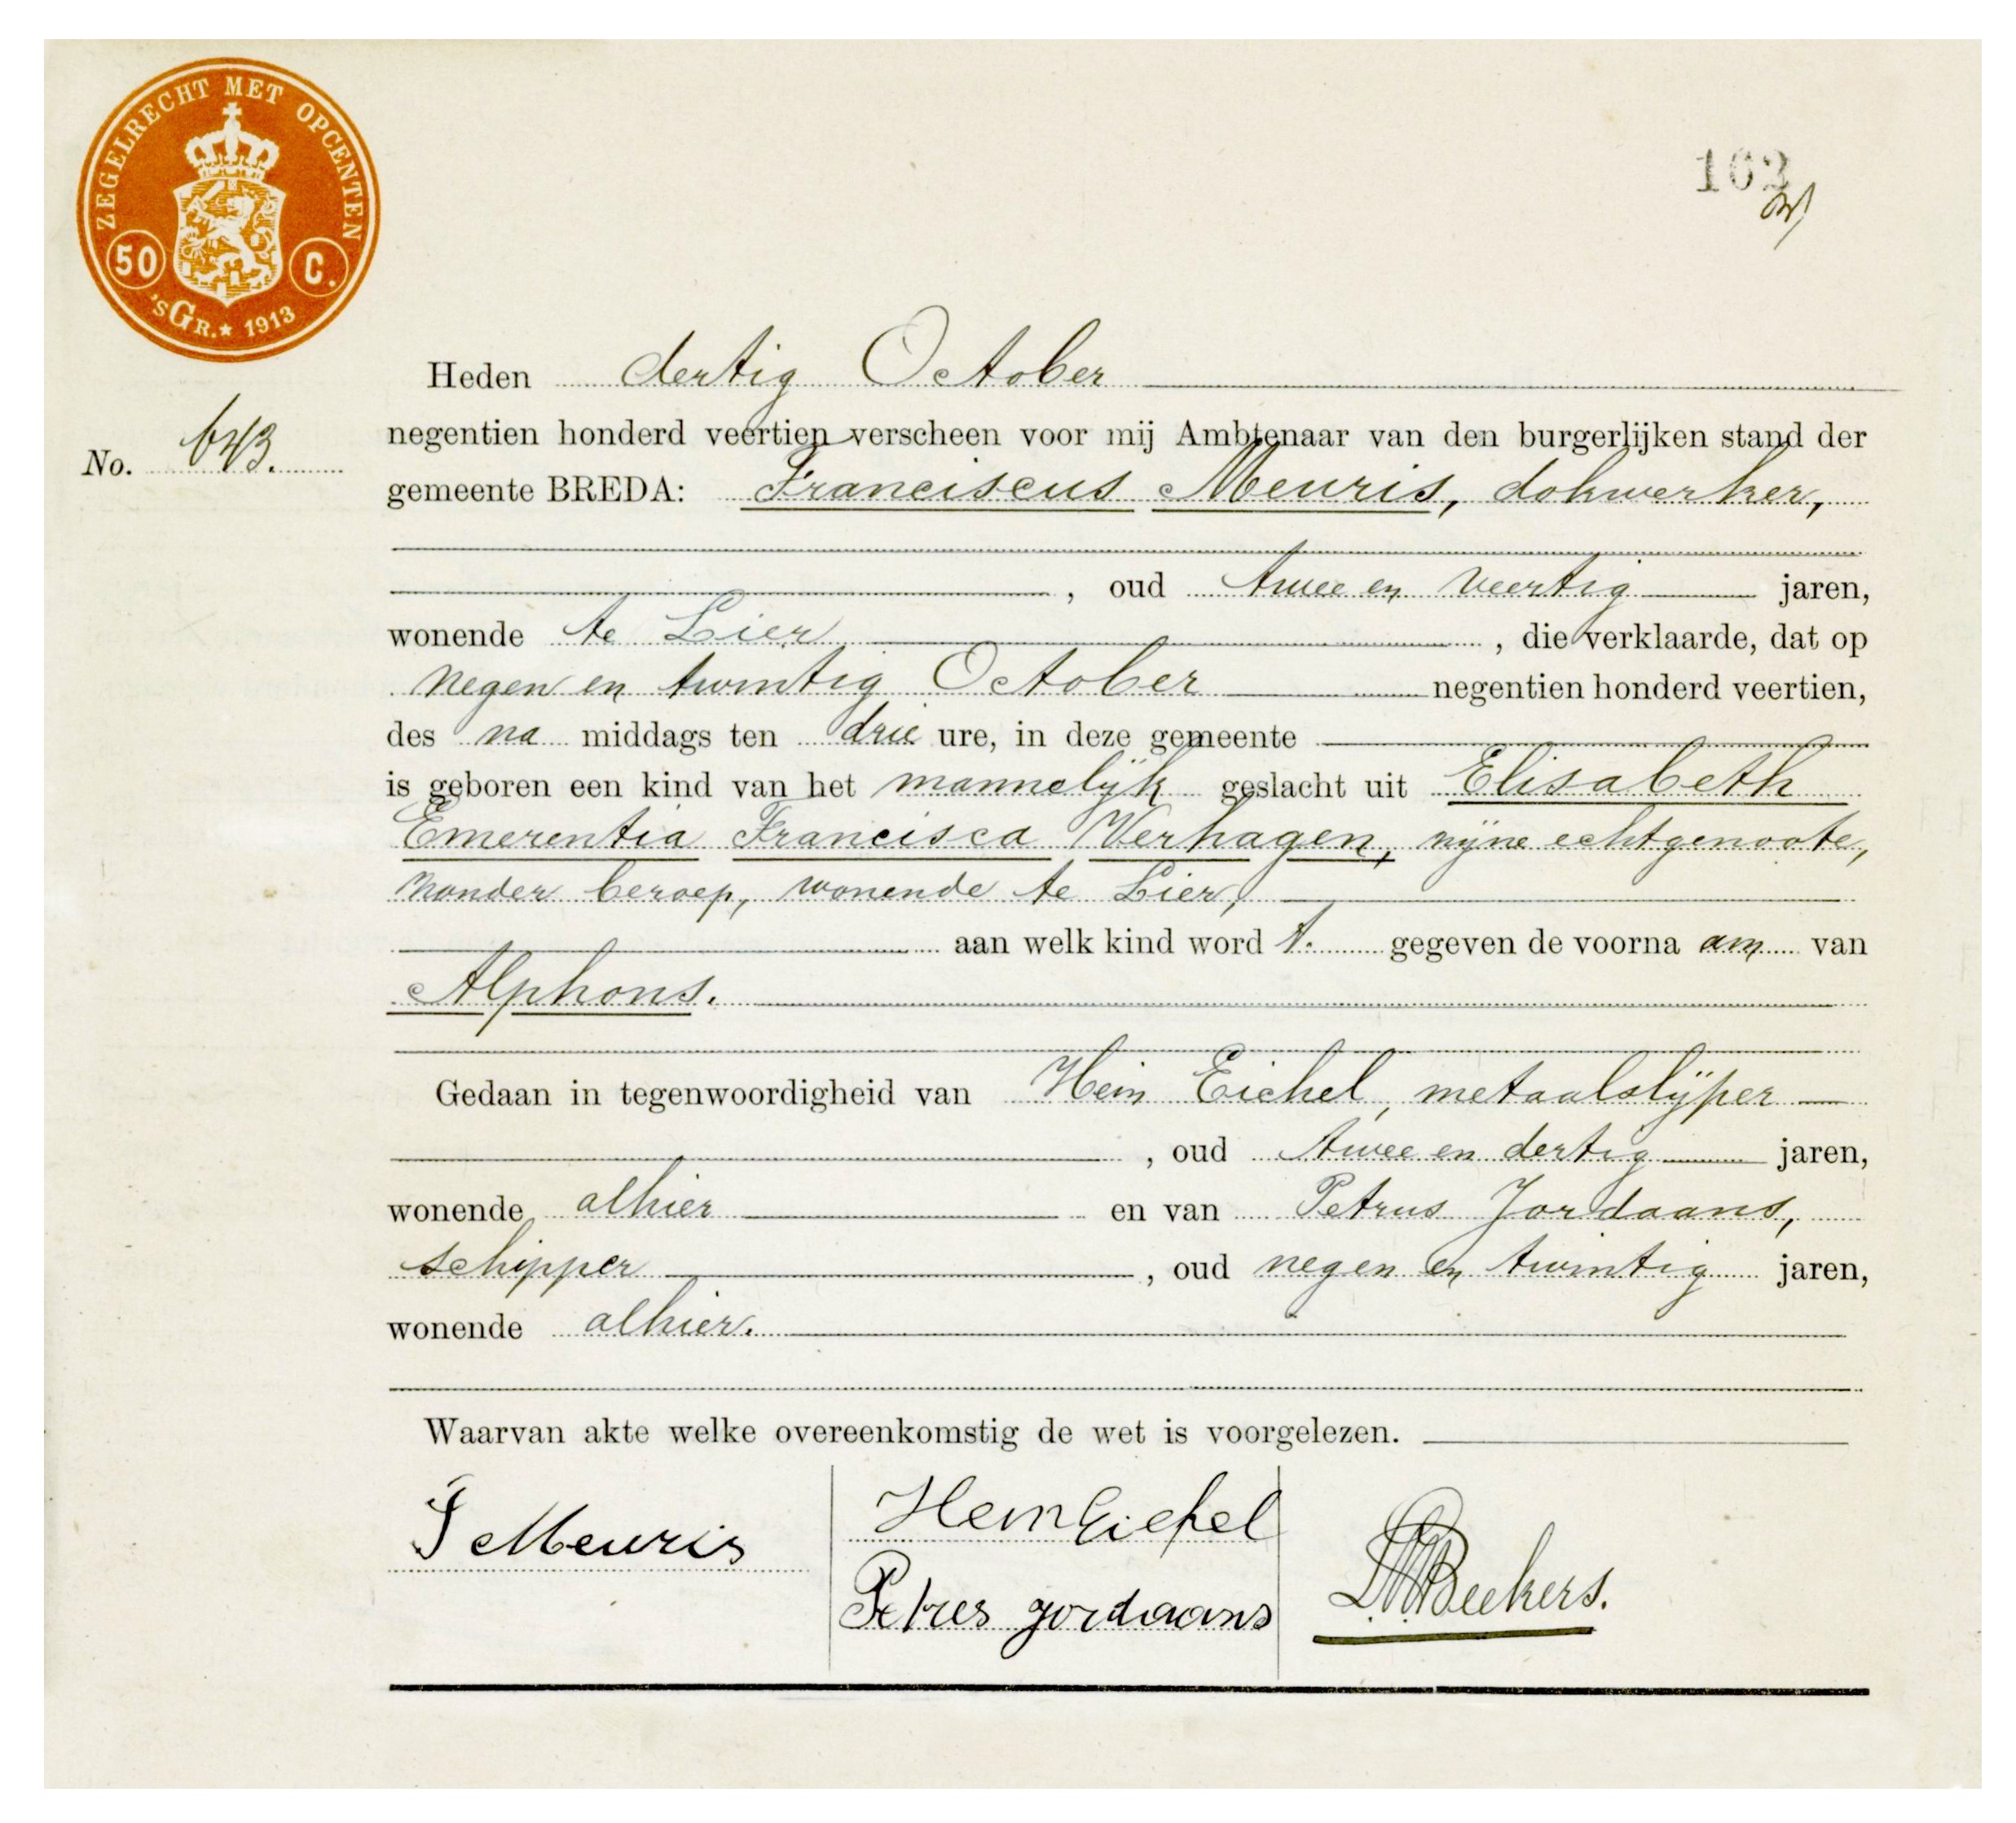 ZEGELRECHT MET OPCENTEN
50 C.
'sGR.★ 1913
No. 643.
Heden dertig October
negentien honderd veertien verscheen voor mij Ambtenaar van den burgerlijken stand der
gemeente BREDA: Franciscus Meuris, dokwerker,
, oud twee en veertig jaren,
wonende te Lier, die verklaarde, dat op
negen en twintig October negentien honderd veertien,
des na middags ten drie ure, in deze gemeente
is geboren een kind van het mannelijk geslacht uit Elisabeth
Emerentia Francisca Verhagen, zijne echtgenoote,
zonder beroep, wonende te Lier,
aan welk kind word t. gegeven de voorna am van
Alphons.
Gedaan in tegenwoordigheid van Hein Eichel, metaalslijper
, oud twee en dertig jaren,
wonende alhier en van Petrus Jordaans,
schipper, oud negen en twintig jaren,
wonende alhier.
Waarvan akte welke overeenkomstig de wet is voorgelezen.
Meuris
Hein Eichel
Petres jordaans
Beekers.